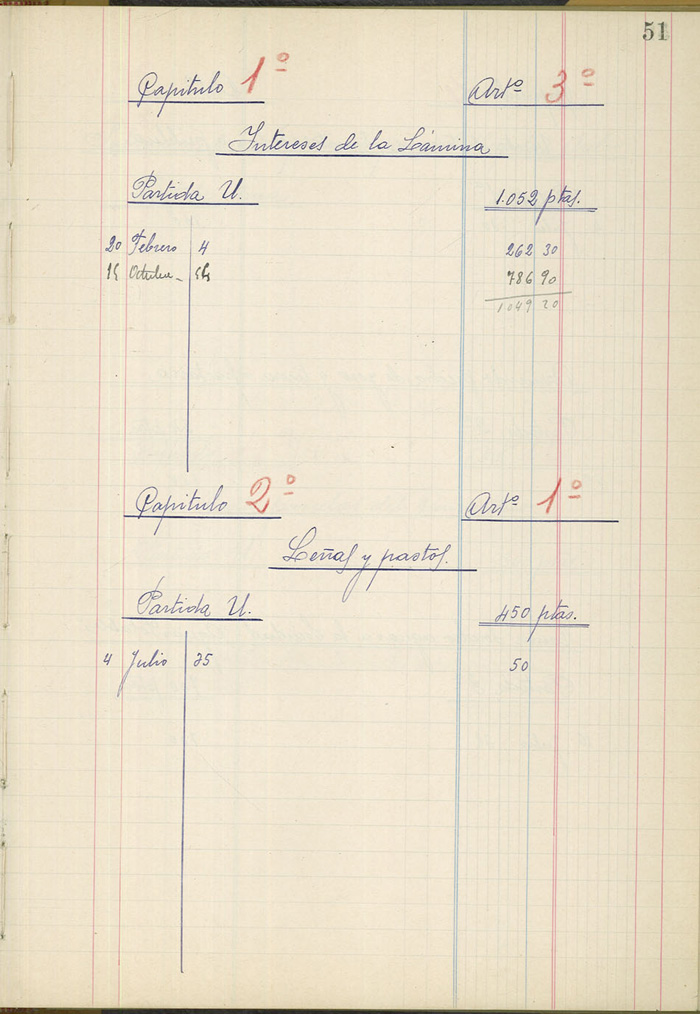 51
Capitulo 1º Artº 3º
Intereses de la Lámina
Partida U. 1.052 ptas.
20 Febrero 4 262 30
15 Octubre 786 90
1049 20
Capitulo 2º Artº 1º
Leñas y pastos.
Partida U. 450 ptas.
4 Julio 35 50